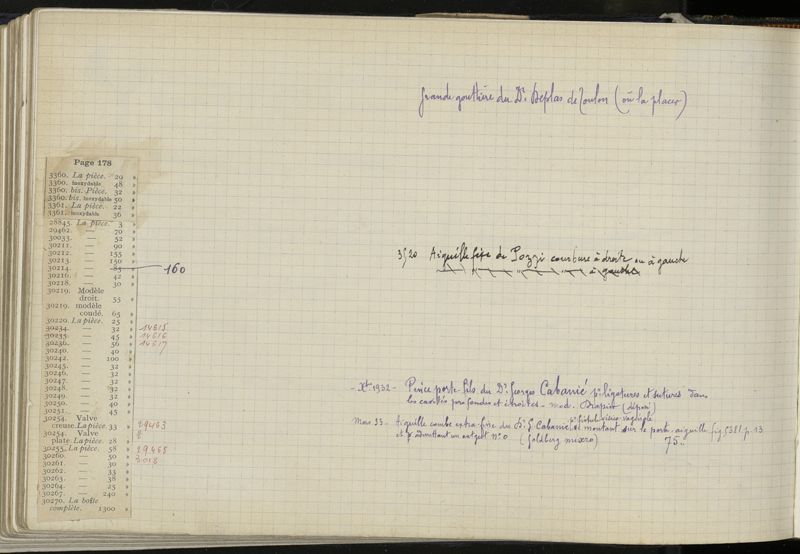 grande gouttière du Dr. Deplas de Toulon (où la placer)
Page 178
3360. La pièce. 29 »
3360. Inoxydable 48 »
3360. bis. Pièce. 32 »
3360. bis. Inoxydable 50 »
3361. La pièce. 22 »
3361. Inoxydable 36 »
28845. La pièce. 3 »
29462. — 70 »
30033. — 52 »
30211. — 90 »
30212. — 155 »
30213 — 150 »
30214. — 85 160
30216. — 42 »
30218. — 30 »
30219. Modèle
droit. 55 »
30219. modèle
coudé. 65 »
30220. La pièce. 25 »
30234. — 32 » 14615
30235. — 45 » 14616
30236. — 56 » 14617
30240. — 40 »
30242. — 100 »
30245. — 32 »
30246. — 32 »
30247. — 32 »
30248. — 32 »
30249. — 32 »
30250. — 40 »
30251. — 45 »
30254. Valve
creuse. La pièce. 33 » 29463
30254. Valve
plate. La pièce. 28 »
30255. La pièce. 58 » 29465
30260. — 50 »
30261. — 30 »
30262. — 33 »
30263. — 38 »
30264. — 25 »
30267. — 240 »
30270. La boîte
complète. 1300 »
Aiguille fixe de Pozzi courbure à droite ou à gauche
à gauche
- Xt 1932 - Pince porte-fils du Dr. Georges Cabanié pr ligatures et sutures dans
les cavités profondes et étroites - mod. Drapier (déposé)
Mars 33 - Aiguille courbe extra-fine du Dr. G. Cabanié et montant sur le porte-aiguille fig. 5381 p. 13
et p. admettant un catgut No. 0 (Goldberg micro) 75 "